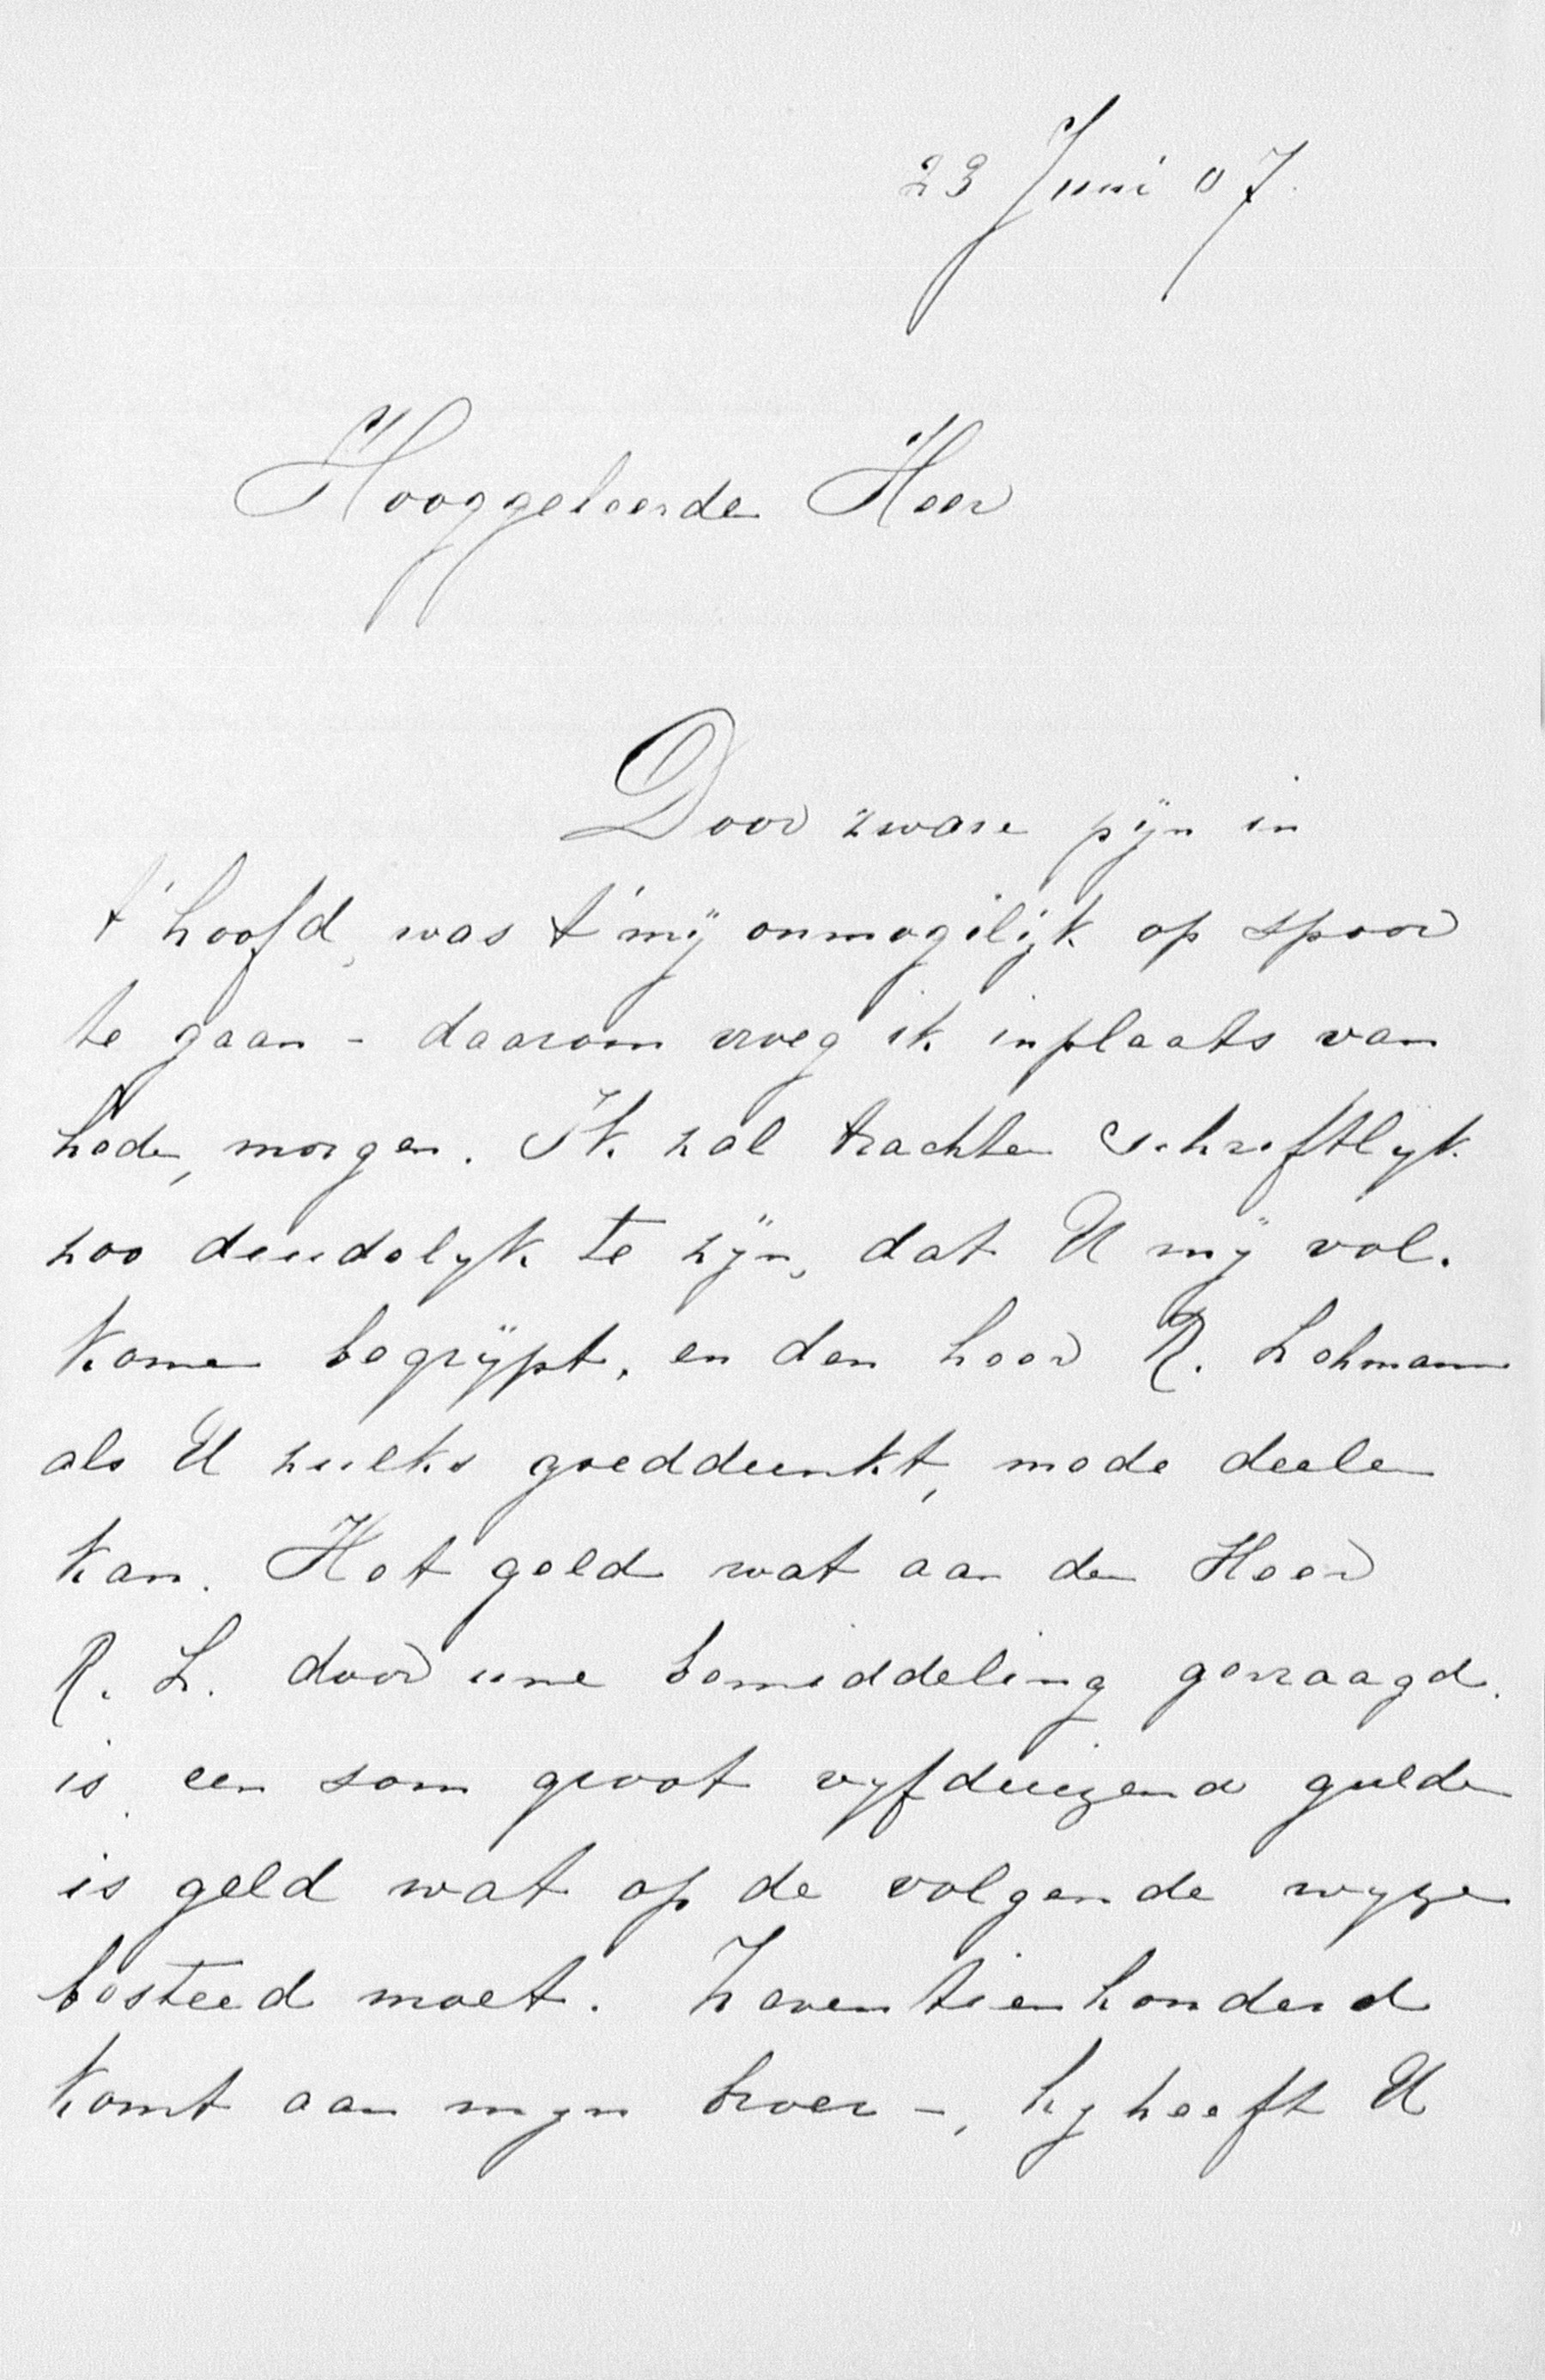 23 Juni 07.
Hooggeleerde Heer
Door zware pijn in
t'hoofd, was t'mij onmogelijk op spoor
te gaan - daarom vroeg ik inplaats van
heden, morgen. Ik zal trachten schriftlijk
zoo duidelijk te zijn, dat U mij vol-
komen begrijpt, en den heer R. Lohmann
als U zulks goeddunkt, mede deelen
kan. Het geld wat aan den Heer
R. L. door uwe bemiddeling gevraagd.
is een som groot vijfduizend gulden
is geld wat op de volgende wijze
besteed moet. Zeventienhonderd
komt aan mijn broer -, hij heeft U